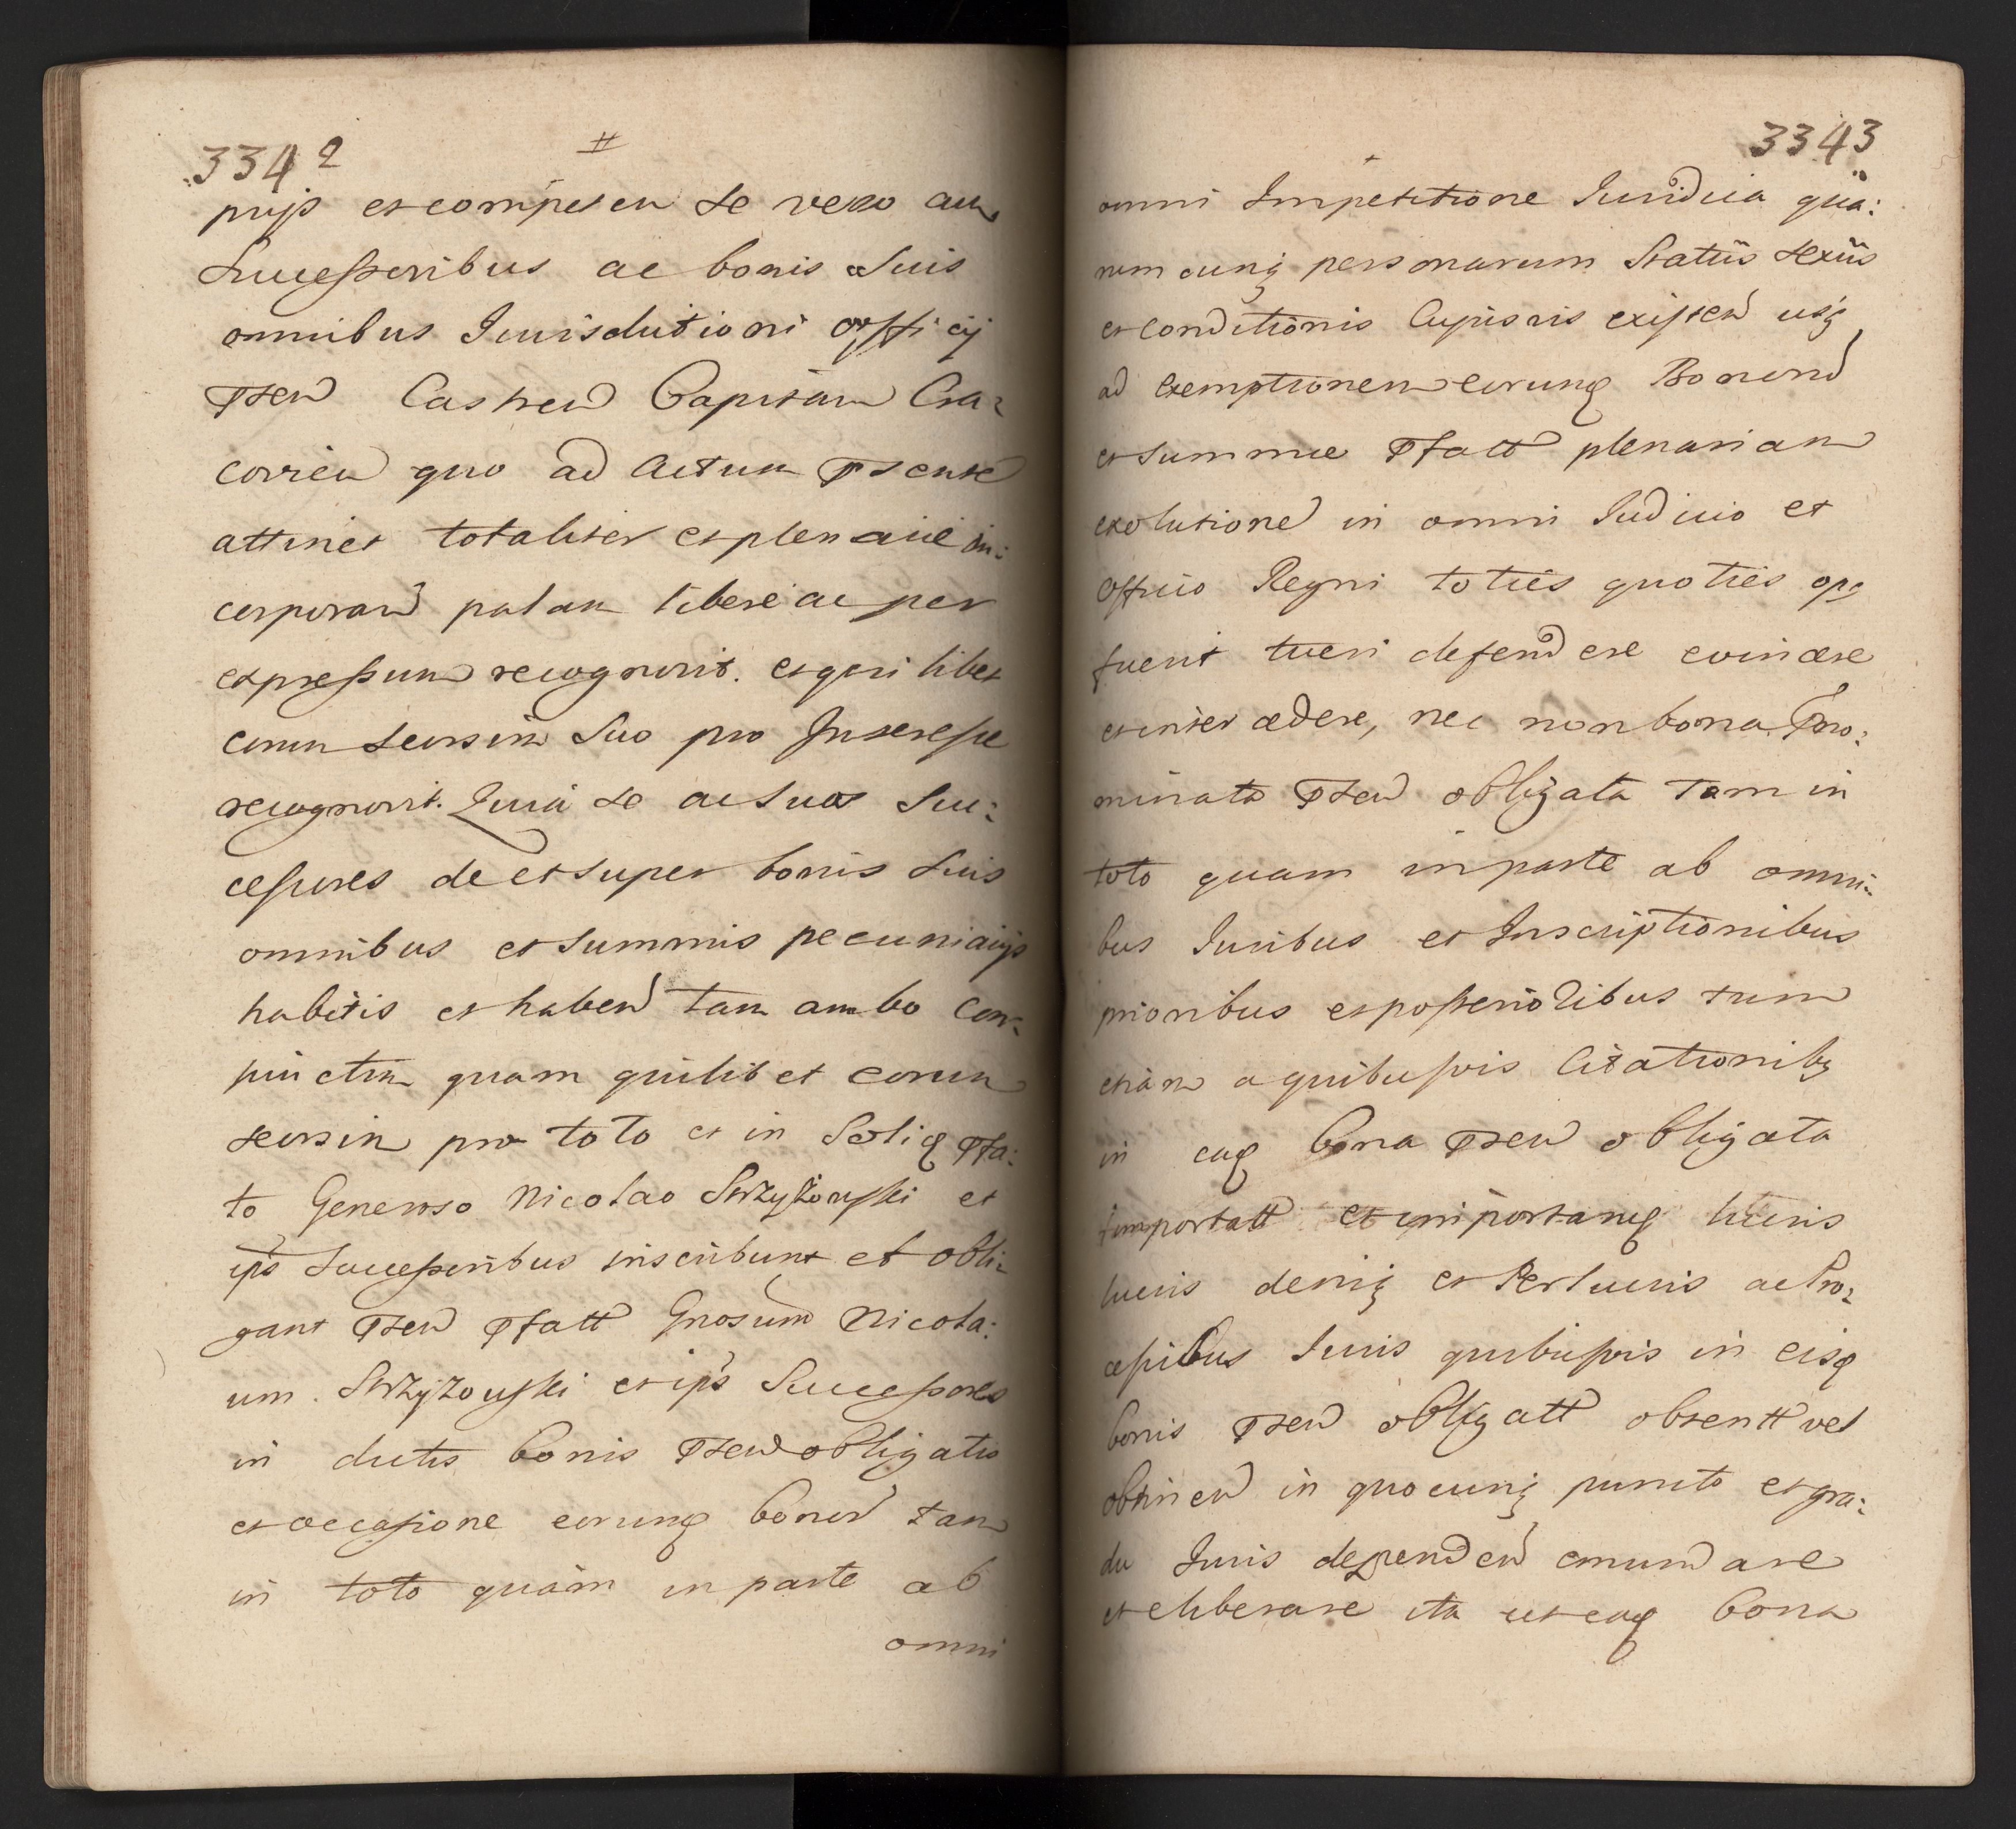 3342
prijs et competen se vero cum
Successoribus ac bonis Suis
omnibus Jurisdictioni officij
pnen Castren Capitan Cra:
covien quo ad Actum pnsente
attinet totaliter et plenarie in:
corporan palam libere ac per
expressum recognovit. et quilibet
eorum seorsim Suo pro Interesse
recognovit. Quia se ac suos Suc:
cessores de et super bonis Suis
omnibus et summis pecuniarijs
habitis et haben tam ambo con:
juinctim quam quilibet eorum
seorsim pro toto et in Solid pfa:
to Generoso Nicolao Strzyżowski et
ips Successoribus inscribunt et obli:
gant psen pfatt Gnosum Nicola:
um Strzyżowski et ips Successores
in dictis bonis psen obligatis
et occasione eorumq bonor tam
in toto quam in parte ab
omni
3343
omni Impetitione Juridica qua:
rumcunq personarum Status sexus
et Conditionis Cujusvis existen usq
ad exemptionem eorumq Bonorum
et summae pfatt plenariam
exolutione in omni Judicio et
Officio Regni toties quoties op9
fuerit tueri defendere evincere
et intercedere, nec non bona Pno:
minata psen obligata tam in
toto quam in parte ab omni:
bus Juribus et Inscriptionibus
prioribus et posterioribus tum
etiam a quibusvis Citationibq
in eaq bona psen obligata
importatt et importanq lucris
lucris deniq et Perlucris ac Pro:
cessibus Juris quibusvis in eisq
bonis psen obligatt obtentt vel
obtinen in quocunq puncto et gra:
du Juris dependen emundare
et eliberare ita ut eaq bona